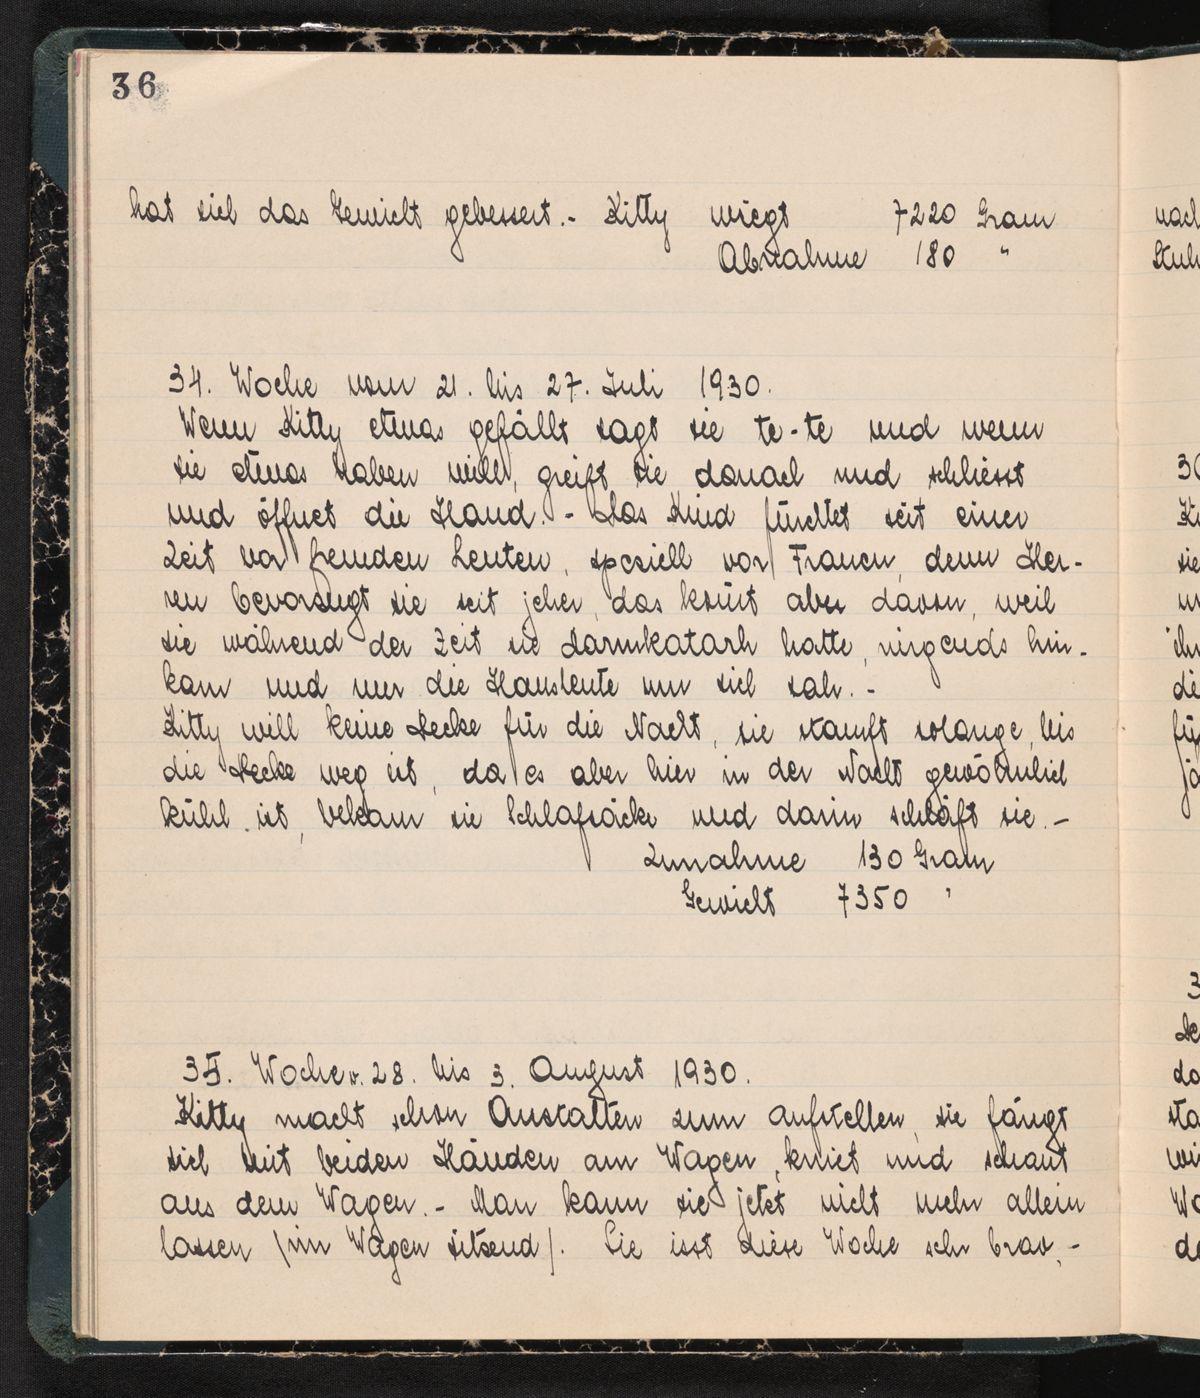 36
hat sich das Gewicht gebessert.- Kitty wiegt 7220 Gram
Abnahme 180 "
34. Woche vom 21. bis 27. Juli 1930.
Wenn Kitty etwas gefällt sagt sie te-te und wenn
sie etwas haben will, greift sie danach und schliesst
und öffnet die Hand. - Das Kind fürchtet seit einer
Zeit vor fremden Leuten, speziell vor Frauen, denn Her-
ren bevorzugt sie seit jeher, das kommt aber davon, weil
sie während der Zeit sie Darmkatarh hatte, nirgends hin-
kam und nur die Hausleute um sich sah. -
Kitty will keine Decke für die Nacht, sie stampft solange, bis
die Decke weg ist, da es aber hier in der Nacht gewöhnlich
kühl ist, bekam sie Schlafsäcke und darin schläft sie. -
Zunahme 130 Gram
Gewicht 7350 '
35. Woche v. 28. bis 3. August 1930.
Kitty macht schon Anstalten zum aufstellen, sie fängt
sich mit beiden Händen am Wagen, kniet und schaut
aus dem Wagen. - Man kann sie jetzt nicht mehr allein
lassen (im Wagen sitzend). Sie isst diese Woche sehr brav. -
nach
Stuh
30
sie
ihr
die
für
3
do
sta
wi
Wo
de